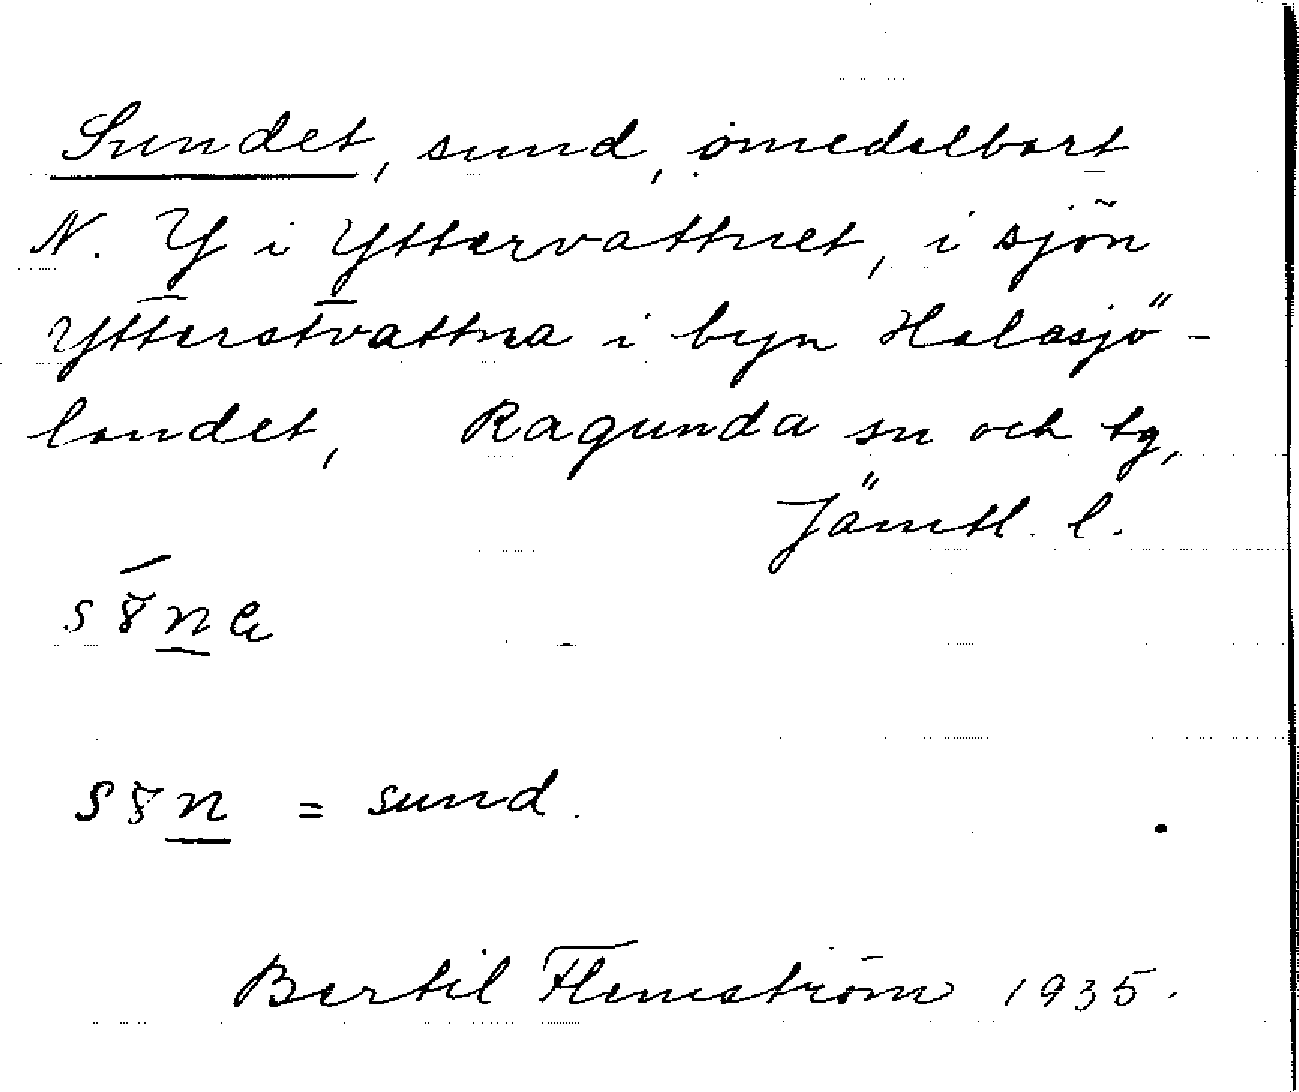 Sundet, sund, omedelbart
N. Y i Yttervattnet, i sjön
Ytterstvattna i byn Halasjö-
landet, Ragunda sn och tg,
Jämtl. l.
= sund.
Bertil Flemström 1935.